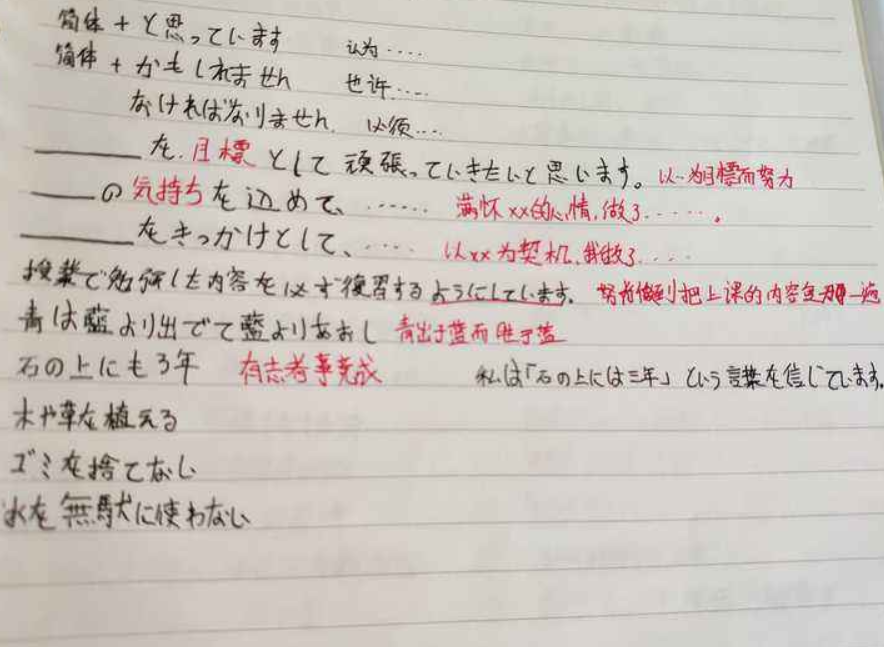 简体 + と思っています 认为····
简体 + かもしれません 也许····
なければなりません. 必须···
______を.目標として頑張っていきたいと思います。以··为目標而努力
____の気持ちを込めて、······ 满怀xx的心情,做了······。
______をきっかけとして、···· 以xx为契机,我做了····
授業で勉強した内容を必ず復習するようにしています. 努力做到把上课的内容复习一遍
青は藍より出でて藍よりあおし 青出于蓝而胜于蓝
石の上にも3年 有志者事竟成 私は「石の上には三年」という言葉を信じています.
木や草を植える
ゴミを捨てなし
水を無駄に使わない